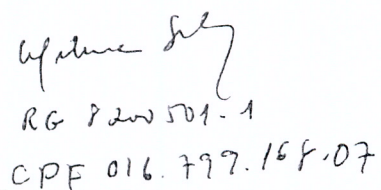 RG 8200501-1
CPF 016.799.168.07